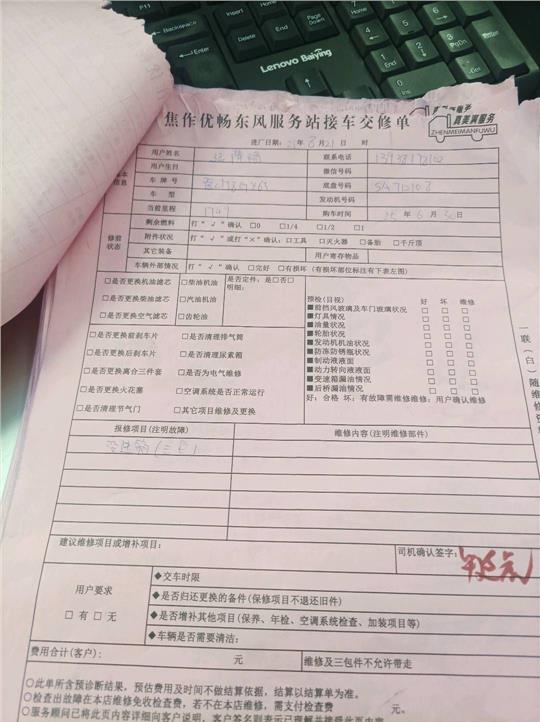 F11
Insert
Home
Page Up
Delete
End
Page Down
Enter
Ctrl
Lenovo Baiying
焦作优畅东风服务站接车交修单
真美满服务
ZHENMEIMANFUWU
进厂日期: 年8月21日 时
用户姓名 联系电话
用户生日 微信号码
基本信息
车牌号 底盘号码
车型 发动机号码
当前里程 购车时间 25年6月30日
修前状态
剩余燃料 打“√”确认 □0 □1/4 □1/2 □1
附件状况 打“√”或打“×”确认:□工具 □灭火器 □备胎 □千斤顶
其它装备 用户寄存物品
车辆外部情况 打“√”确认 □完好 □有损坏(有损坏部位标注有下表左图)
□是否更换机油滤芯 □柴油机油 是否定件:是□否□
□是否更换柴油滤芯 □汽油机油 明细:
□是否更换空气滤芯 □齿轮油
□是否更换前刹车片 □是否清理排气筒
□是否更换后刹车片 □是否清理尿素箱
□是否更换离合三件套 □是否为电气维修
□是否更换火花塞 □空调系统是否正常运行
□是否清理节气门 □其它项目维修及更换
预检(目视) 好 坏 维修
■前挡风玻璃及车门玻璃状况 □ □ □
■灯具情况 □ □ □
■油量状况 □ □ □
■轮胎状况 □ □ □
■发动机机油状况 □ □ □
■防冻防锈瓶状况 □ □ □
■制动液液面 □ □ □
■动力转向液液面 □ □ □
■变速箱漏油情况 □ □ □
■后桥漏油情况 □ □ □
好:合格 坏:有故障需维修维修:用户确认维修
报修项目(注明故障) 维修内容(注明维修部件)
建议维修项目或增补项目:
司机确认签字:
用户要求
□有 □无
◆交车时限
◆是否归还更换的备件(保修项目不退还旧件)
◆是否增补其他项目(保养、年检、空调系统检查、加装项目等)
◆车辆是否需要清洁:
费用合计(客户): 元 维修及三包件不允许带走
○此单所含预诊断结果,预估费用及时间不做结算依据,结算以结算单为准。
○检查出故障在本店维修免收检查费,若不在本店维修,需支付检查费 元。
○服务顾问已将此页内容详细向客户说明,客户签名则表示已理解并接受此页内容
一联(白)随